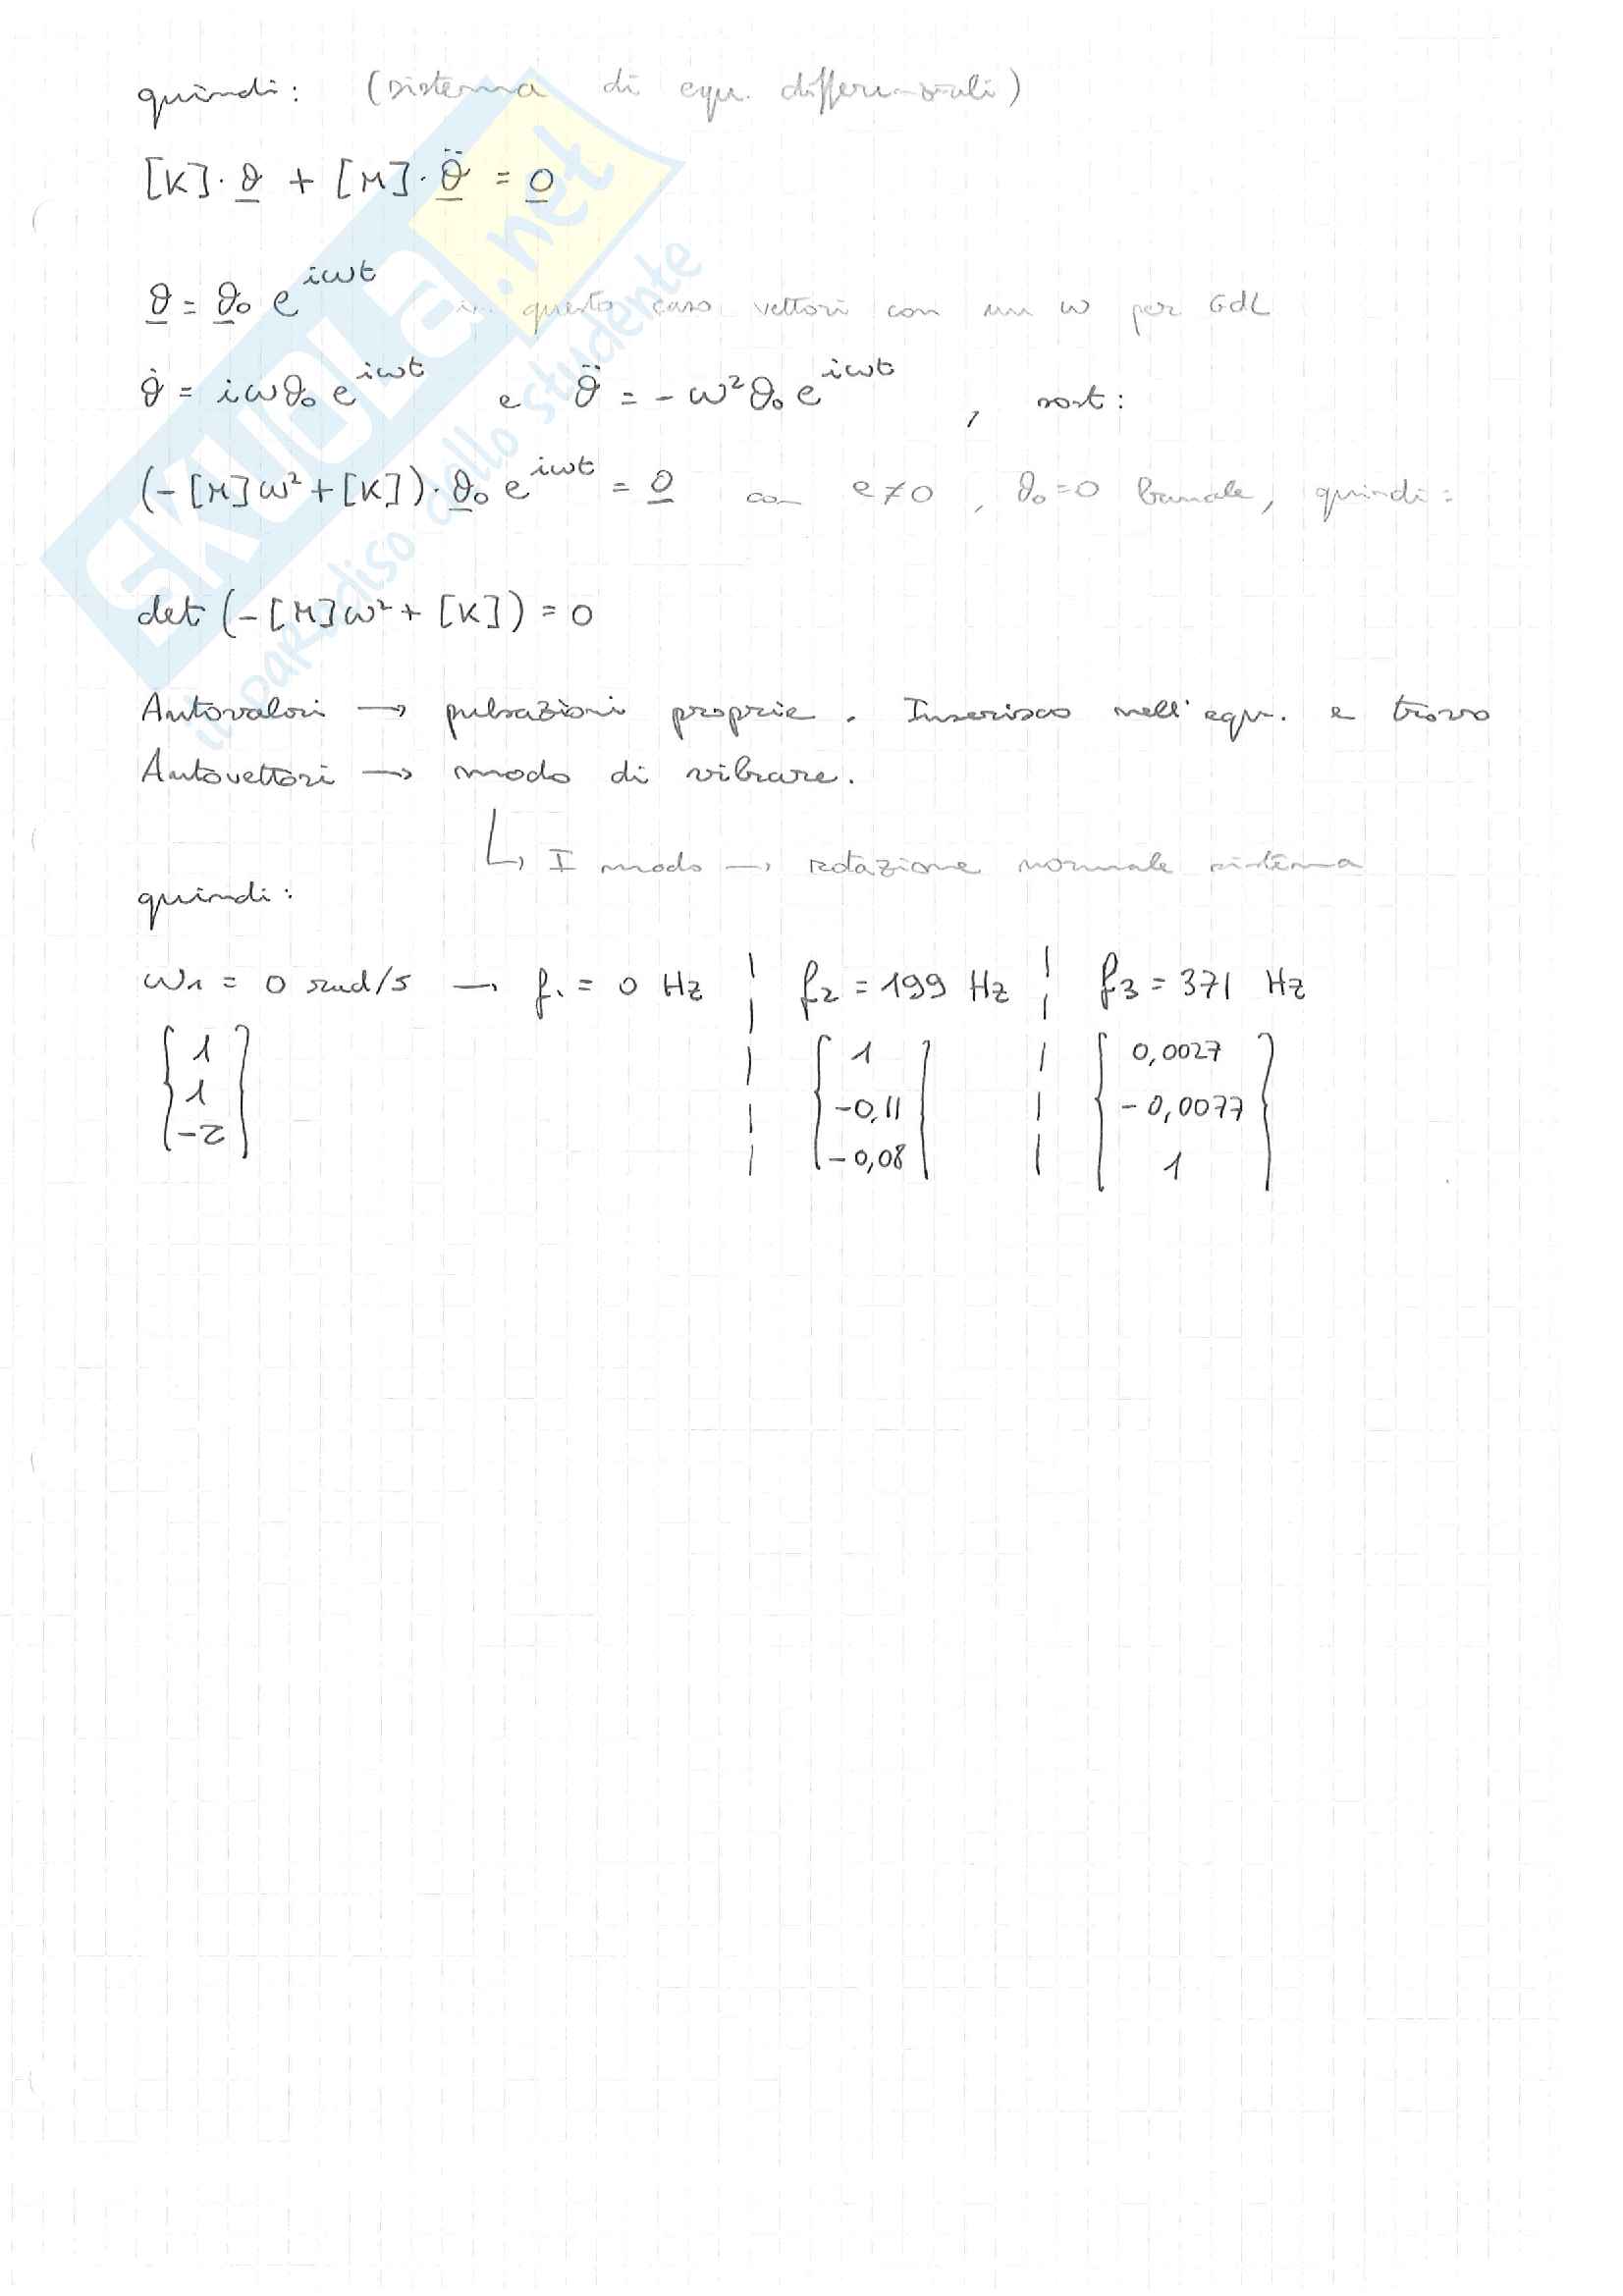 quindi: (sistema di equ. differenziali)
[K]·ϑ + [M]·ϑ̈ = 0
ϑ = ϑ₀ e^{iωt} in questo caso vettori con un ω per GdL
ϑ̇ = iωϑ₀ e^{iωt} e ϑ̈ = -ω²ϑ₀ e^{iωt} , sost:
(-[M]ω²+[K])·ϑ₀ e^{iωt} = 0 con e≠0 , ϑ₀=0 banale, quindi:
det (-[M]ω²+ [K]) = 0
Autovalori → pulsazioni proprie. Inserisco nell'equ. e trovo
Autovettori → modo di vibrare.
↳ I modo → rotazione normale sistema
quindi:
ω₁ = 0 rad/s → f₁ = 0 Hz ¦ f₂ = 199 Hz ¦ f₃ = 371 Hz
{1 1 -2} ¦ {1 -0,11 -0,08} ¦ {0,0027 -0,0077 1}
SKUOLA.net
il paradiso dello studente